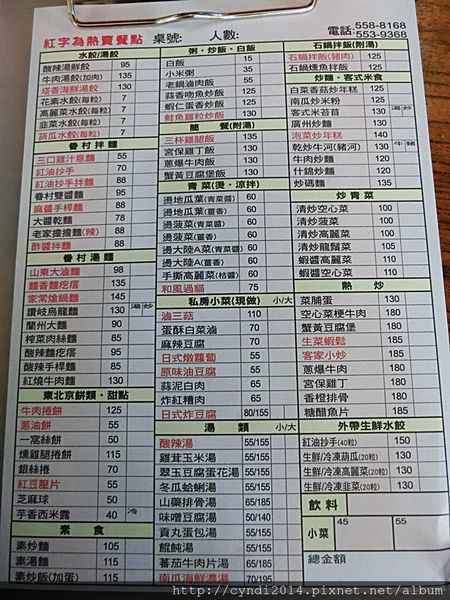 紅字為熱賣餐點 桌號: 人數:
電話: 558-8168
553-9368
水餃/湯餃
酸辣湯鮮餃 95
牛肉湯鮮餃(加肉) 135
塔香海鮮鍋餃 130
花素水餃(每粒) 7
高麗菜水餃(每粒) 7
韭菜水餃(每粒) 7
胡瓜水餃(每粒) 7
眷村拌麵
三口雞汁意麵 55
紅油抄手 70
紅油抄手拌麵 88
眷村雙醬麵 95
麻醬手桿麵 88
大醬乾麵 88
老家擔擔麵(辣) 88
酢醬拌麵 88
眷村湯麵
山東大滷麵 98
麵香麵疙瘩 135
家常熗鍋麵 145
讚岐烏龍麵 130 湯 炒
蘭州大麵 90
榨菜肉絲麵 85
酸辣麵疙瘩 85
酸辣手桿麵 85
紅燒牛肉麵 130
東北京餅類‧甜點
牛肉捲餅 125
蔥油餅 55
一窩絲餅 50
燻雞腿捲餅 110
銀絲捲 70
紅豆壓片 55
芝麻球 50
芋香西米露 40 冷
素 食
素炒麵 105
素湯麵 115
素炒飯(加蛋) 115
粥‧炒飯‧白飯
白飯 15
小米粥 35
老鍋滷肉飯 55
蒜香吻魚炒飯 125
蝦仁蛋香炒飯 125
鮭魚雞粒炒飯 130
三杯雞腿飯 130
宮保雞丁飯 130
蔥爆牛肉飯 130
蟹黃豆腐煲飯 130
青 菜(燙‧涼拌)
燙地瓜葉(青菜醬) 60
燙地瓜葉(薑香) 60
燙菠菜(青菜醬) 60
燙菠菜(薑香) 60
燙大陸A(青菜醬) 60
燙大陸A(薑香) 60
手撕高麗菜(桔醬) 60
和風過貓 75
私房小菜(現做) 小/大
滷三菇 110
蛋酥白菜滷 70
麻辣豆腐 50
日式燉蘿蔔 55
原味油豆腐 55
蒜泥白肉 65
炸紅糟肉 65
日式炸豆腐 80/155
湯 類 小/大
酸辣湯 55/155
雞茸玉米湯 55/155
翠玉豆腐蛋花湯 55/155
冬瓜蛤蜊湯 55/155
山藥排骨湯 65/185
味噌豆腐湯 50/140
貢丸蛋包湯 55/155
餛飩湯 55/155
蕃茄牛肉片湯 65/185
南瓜海鮮濃湯 70/195
石鍋拌飯(附湯)
石鍋拌飯(豬肉) 125
石鍋燻魚拌飯 125
炒麵‧客式米食
白菜香菇炒年糕 130
南瓜炒米粉 125
客式米苔苜 130 湯 炒
廣州炒麵 130
泡菜炒年糕 140
乾炒牛河(豬河) 130 牛 豬
牛肉炒麵 130
什錦炒麵 130
炒碼麵 135
炒 青 菜
清炒空心菜 100
清炒菠菜 100
清炒高麗菜 100
清炒龍鬚菜 105
蝦醬高麗菜 110
蝦醬空心菜 110
熱 炒
菜脯蛋 130
空心菜梗牛肉 180
蟹黃豆腐煲 180
生菜蝦鬆 185
客家小炒 185
蔥爆牛肉 180
宮保雞丁 180
香橙排骨 180
糖醋魚片 180
外帶生鮮水餃
紅油抄手(40粒) 150
生鮮/冷凍胡瓜(20粒) 130
生鮮/冷凍高麗菜(20粒) 130
生鮮/冷凍韭菜(20粒) 130
飲料
小菜 45 55
總金額
http://cyndi2014.pixnet.net/album